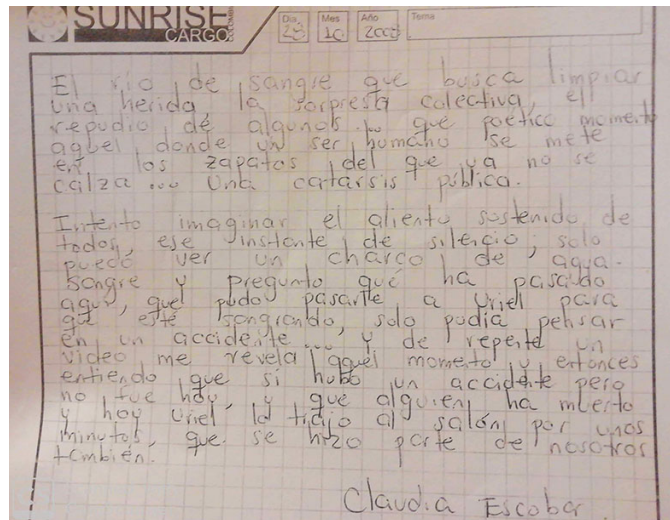 SUNRISE
CARGO
Día Mes Año Tema
10
El río de sangre que busca limpiar
una herida, la sorpresa colectiva, el
repudio de algunos... que poético momento
aquel, donde un ser humano se mete
en los zapatos del que ya no se
calza... Una catarsis pública.
Intento imaginar el aliento sostenido de
todos, ese instante de silencio; solo
puedo ver un charco de agua-
sangre y pregunto qué ha pasado
aquí, qué pudo pasarle a Uriel para
que esté sangrando, solo podía pensar
en un accidente... y de repente un
video me revela aquel momento y entonces
entiendo que si hubo un accidente pero
no fue hoy, y que alguien ha muerto
y hoy Uriel lo trajo al salón por unos
minutos, que se hizo parte de nosotros
también.
Claudia Escobar